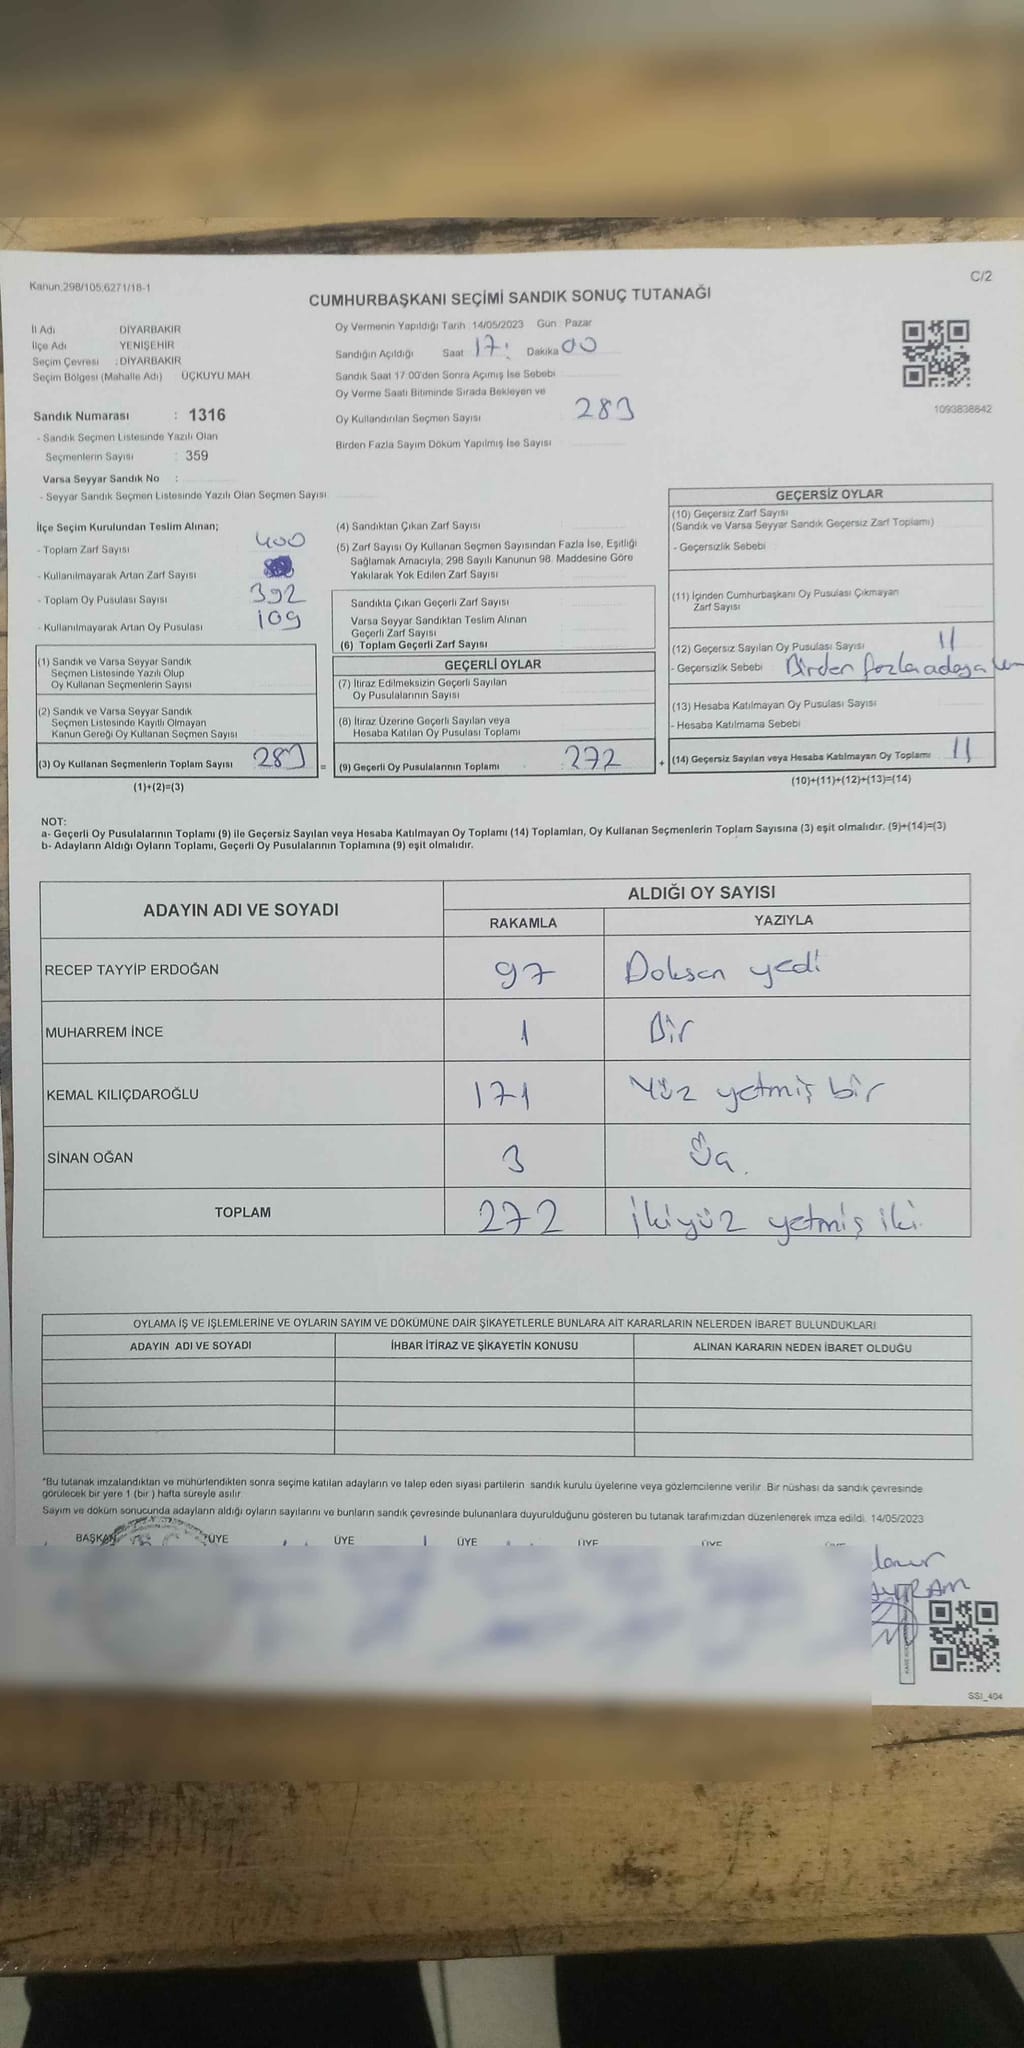 Kanun.298/105;6271/18-1
C/2
CUMHURBAŞKANI SEÇİMİ SANDIK SONUÇ TUTANAĞI
İl Adı DİYARBAKIR
İlçe Adı YENİŞEHİR
Seçim Çevresi : DİYARBAKIR
Seçim Bölgesi (Mahalle Adı) ÜÇKUYU MAH
Sandık Numarası : 1316
- Sandık Seçmen Listesinde Yazılı Olan
Seçmenlerin Sayısı : 359
Varsa Seyyar Sandık No :
- Seyyar Sandık Seçmen Listesinde Yazılı Olan Seçmen Sayısı
Oy Vermenin Yapıldığı Tarih 14/05/2023 Gün Pazar
Sandığın Açıldığı Saat 17: Dakika 00
Sandık Saat 17 00'den Sonra Açımış İse Sebebi
Oy Verme Saati Bitiminde Sırada Bekleyen ve
Oy Kullandırılan Seçmen Sayısı 283
Birden Fazla Sayım Döküm Yapılmış İse Sayısı
1093838642
İlçe Seçim Kurulundan Teslim Alınan;
- Toplam Zarf Sayısı 400
- Kullanılmayarak Artan Zarf Sayısı
- Toplam Oy Pusulası Sayısı 392
- Kullanılmayarak Artan Oy Pusulası 109
(1) Sandık ve Varsa Seyyar Sandık
Seçmen Listesinde Yazılı Olup
Oy Kullanan Seçmenlerin Sayısı
(2) Sandık ve Varsa Seyyar Sandık
Seçmen Listesinde Kayıtlı Olmayan
Kanun Gereği Oy Kullanan Seçmen Sayısı
(3) Oy Kullanan Seçmenlerin Toplam Sayısı 283 =
(1)+(2)=(3)
(4) Sandıktan Çıkan Zarf Sayısı
(5) Zarf Sayısı Oy Kullanan Seçmen Sayısından Fazla İse, Eşitliği
Sağlamak Amacıyla, 298 Sayılı Kanunun 98. Maddesine Göre
Yakılarak Yok Edilen Zarf Sayısı
Sandıkta Çıkan Geçerli Zarf Sayısı
Varsa Seyyar Sandıktan Teslim Alınan
Geçerli Zarf Sayısı
(6) Toplam Geçerli Zarf Sayısı
GEÇERLİ OYLAR
(7) İtiraz Edilmeksizin Geçerli Sayılan
Oy Pusulalarının Sayısı
(8) İtiraz Üzerine Geçerli Sayılan veya
Hesaba Katılan Oy Pusulası Toplamı
(9) Geçerli Oy Pusulalarının Toplamı : 272 +
GEÇERSİZ OYLAR
(10) Geçersiz Zarf Sayısı
(Sandık ve Varsa Seyyar Sandık Geçersiz Zarf Toplamı)
- Geçersizlik Sebebi
(11) İçinden Cumhurbaşkanı Oy Pusulası Çıkmayan
Zarf Sayısı
(12) Geçersiz Sayılan Oy Pusulası Sayısı 11
- Geçersizlik Sebebi Birden fazla adaya
(13) Hesaba Katılmayan Oy Pusulası Sayısı
- Hesaba Katılmama Sebebi
(14) Geçersiz Sayılan veya Hesaba Katılmayan Oy Toplamı 11
(10)+(11)+(12)+(13)=(14)
NOT:
a- Geçerli Oy Pusulalarının Toplamı (9) ile Geçersiz Sayılan veya Hesaba Katılmayan Oy Toplamı (14) Toplamları, Oy Kullanan Seçmenlerin Toplam Sayısına (3) eşit olmalıdır. (9)+(14)=(3)
b- Adayların Aldığı Oyların Toplamı, Geçerli Oy Pusulalarının Toplamına (9) eşit olmalıdır.
ADAYIN ADI VE SOYADI ALDIĞI OY SAYISI
RAKAMLA YAZIYLA
RECEP TAYYİP ERDOĞAN 97 Doksan yedi
MUHARREM İNCE 1 Bir
KEMAL KILIÇDAROĞLU 171 Yüz yetmiş bir
SİNAN OĞAN 3 Üç
TOPLAM 272 İkiyüz yetmiş iki
OYLAMA İŞ VE İŞLEMLERİNE VE OYLARIN SAYIM VE DÖKÜMÜNE DAİR ŞİKAYETLERLE BUNLARA AİT KARARLARIN NELERDEN İBARET BULUNDUKLARI
ADAYIN ADI VE SOYADI İHBAR İTİRAZ VE ŞİKAYETİN KONUSU ALINAN KARARIN NEDEN İBARET OLDUĞU
*Bu tutanak imzalandıktan ve mühürlendikten sonra seçime katılan adayların ve talep eden siyasi partilerin sandık kurulu üyelerine veya gözlemcilerine verilir. Bir nüshası da sandık çevresinde
görülecek bir yere 1 (bir ) hafta süreyle asılır.
Sayım ve döküm sonucunda adayların aldığı oyların sayılarını ve bunların sandık çevresinde bulunanlara duyurulduğunu gösteren bu tutanak tarafımızdan düzenlenerek imza edildi. 14/05/2023
BAŞKAN ÜYE ÜYE ÜYE ÜYE ÜYE
SSI_404